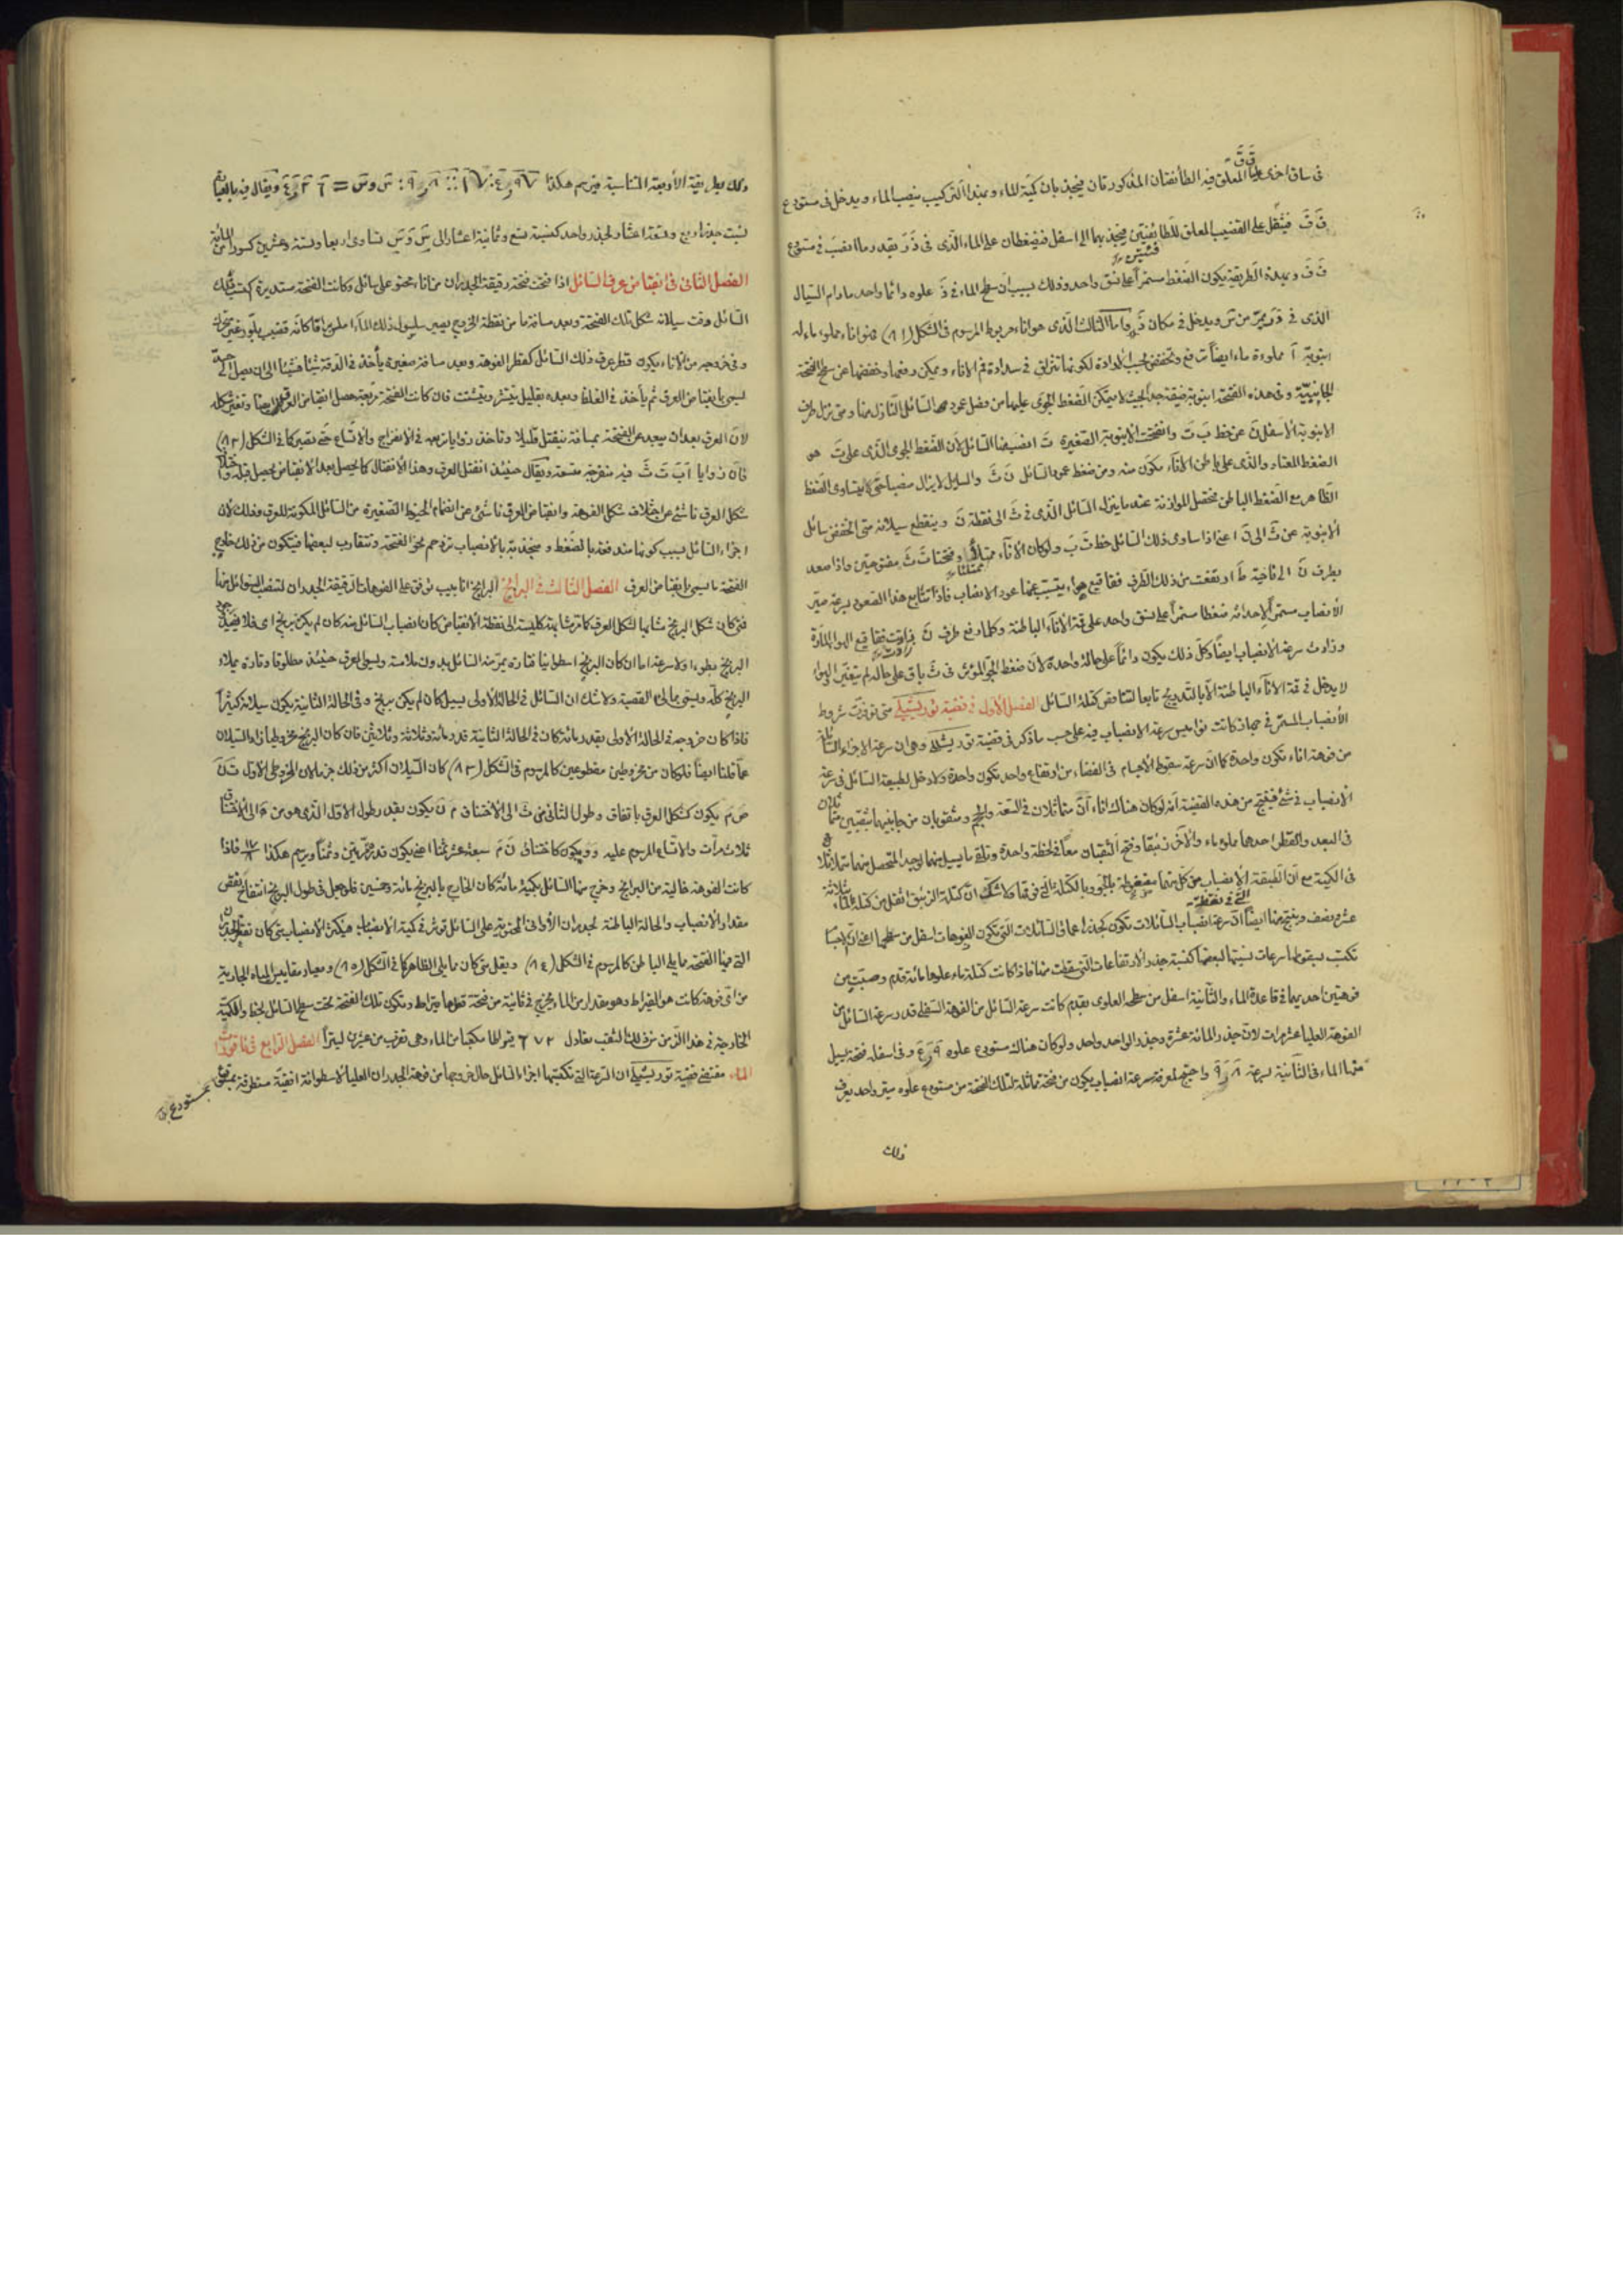 فى ساق اخرى عليا المعلق فيه الطائفتان المذكورتان فيجذبان كمية للماء وبهذا التركيب ينصب الماء ويدخل فى مستودع
قَ قَ فيثقل على القضيب المعلق للطائفتين فيجذبهما الى اسفل فتضغطان على الماء الذى فى ذَ رَ بقدر ما انصب فى مستودع
قَ قَ وبهذه الطريقة يكون الضغط مستمرا على نسق واحد وذلك بسبب ان سطح الماء فى ذَ علوه دائما واحد ما دام السيال
الذى فى ذَ رَ يمر من سَ ويدخل فى مكان ذَ واما الثالث الذى هو اناء مربوط المرسوم فى الشكل (٨١) فهو اناء مملوء ماء له
انبوبة آ مملوءة ماء ايضا ترتفع وتنخفض بحسب الارادة لكونها تنزلق فى سدادة فم الاناء ويمكن رفعها وخفضها عن سطح الفتحة
الجانبية وفى هذه الفتحة انبوبة ضيقة جدا بحيث لا يتمكن الضغط الجوى عليها من فصل عود السائل النازل منها ومتى نزل طرف
الانبوبة الاسفل نَ عن خط بَ تَ وانفتحت الانبوبة الصغيرة تَ انصب منها السائل لان الضغط الجوى الذى على تَ هو
الضغط المعتاد والذى على باطن الاناء يكون منه ومن ضغط عمود السائل نَ ثَ والسايل لا يزال منصبا حتى يتساوى الضغط
الظاهر مع الضغط الباطن فتحصل الموازنة عندما ينزل السائل الذى فى ثَ الى نقطة نَ وينقطع سيلانه متى انخفض سائل
الانبوبة عن ثَ الى نَ اعنى اذا ساوى ذلك السائل خط تَ بَ ولو كان الاناء ممتلئا وفتحتا تَ ثَ مفتوحتين واذا صعد
بطرف نَ الى ناحية طَ ارتفعت من ذلك الطرف فقاقيع هواء يتسبب عنها عود الانصباب فاذا تتابع هذا الصعود بسرعة صير
الانصباب مستمرا لاحداثه ضغطا مستمرا على نسق واحد على قمة الاناء الباطنة وكلما رفع طرف نَ زادت فقاقيع الهواء المارة
وزادت سرعة الانصباب ايضا وكل ذلك يكون دائما على حالة واحدة لان ضغط الجو المؤثر فى ثَ باق على حاله لم يتغير والهواء
لا يدخل فى قمة الاناء الباطنة الا بالتدريج تابعا لتناقص كتلة السائل الفصل الاول فى قضية توريشيلى متى توفرت شروط
الانصباب المستمر فى جهاز كانت نواميس سرعة الانصباب فيه على حسب ما ذكر فى قضية توريشيلى وهى ان سرعة الاجزاء السائلة
من فوهة اناء تكون واحدة كما ان سرعة سقوط الاجسام فى الفضاء من ارتفاع واحد تكون واحدة ولا دخل لطبيعة السائل فى سرعة
الانصباب فى شئ فينتج من هذه القضية انه لو كان هناك اناءان متماثلان فى السعة والحجم ومثقوبان من جانبيهما بثقبين متماثلين
فى البعد والقطر احدهما مملوء ماء والاخر زئبقا وفتح الثقبان معا فى لحظة واحدة وتلقى ما يسيل منهما لوجد المتحصل منهما متماثلا
فى الكمية مع ان الطبقة الانصباب من كل منهما مضغوطة بالجو وبالكتلة التى فوقها ولا شك ان كتلة الزئبق اثقل من كتلة الماء بثلاثة
عشر ونصف وينتج منها ايضا ان سرعة انصباب السائلات تكون كجذر اعماق السائلات التى تكون الفوهات اسفل من سطحها
تكتسب بسقوطها سرعات نسبتها لبعضها كنسبة جذر الارتفاعات التى سقطت منها فاذا كانت كتلة ماء علوها مائة قدم وصبت من
فوهتين احديهما فى قاعدة الماء والثانية اسفل من سطحه العلوى بقدم كانت سرعة السائل من الفوهة السفلى قدر سرعة السائل من
الفوهة العليا عشر مرات لان جذر المائة عشرة وجذر الواحد واحد ولو كان هناك مستودع علوه ٩ر٤ وفى اسفله فتحة يسيل
منها الماء فى الثانية بسرعة ٨ر٩ واحتيج لمعرفة سرعة انصباب يكون من فتحة مماثلة لتلك الفتحة من مستودع علوه متر واحد يعرف
ذلك
وذلك بطريقة الأربعة المتناسبة فيرسم هكذا
نسبت جذر اربع وتسعة اعشار لجذر واحد كنسبة تسع وثمانية اعشار الى سَ وَ سَ تساوى اربعا وستة وعشرين كسورا من المائة
الفصل الثانى فى انقباض عرق السائل اذا فتحت فتحة رقيقة الجدران من اناء محتو على سائل وكانت الفتحة مستديرة اكتسب ذلك
السائل وقت سيلانه شكل تلك الفتحة وبعد مسافة ما من نقطة الخروج يصير
وفى خروجه من الاناء يكون قطر عرق ذلك السائل كقطر الفوهة وبعد مسافة صغيرة يأخذ فى الدقة شيئا فشيئا الى ان يصل الى حد
يسمى بانقباض العرق ثم يأخذ فى الغلظ وبعده بقليل ينتشر ويتشتت فان كانت الفتحة مربعة حصل انقباض العرق ايضا وتغير شكله
لان العرق بعد ان يبعد عن الفتحة بمسافة ينفتل قليلا وتأخذ زواياه فى الانفراج والاتساع حتى تصير كما فى الشكل (٨٢)
فان زوايا آ بَ تَ ثَ فيه منفرجة متسعة ويقال حينئذ انفتل العرق وهذا الانفتال كما يحصل بعد الانقباض يحصل قبله
شكل العرق ناشئ عن اختلاف شكل الفوهة وانقباض العرق ناشئ عن انضمام الخيوط الصغيرة من السائل المكونة للعرق وذلك لان
اجزاء السائل بسبب كونها مندفعة بالضغط ومنجذبة بالانصباب تزدحم نحو الفتحة وتتقارب لبعضها فيتكون من ذلك خارج
الفتحة ما يسمى بانقباض العرق الفصل الثالث فى البرابخ البرابخ انابيب توفق على الفوهات الرقيقة الجدران لتنصب السوائل منها
فمتى كان شكل البربخ مشابها لشكل العرق مشابهة كلية الى نقطة الانقباض كان انصباب السائل منه كان لم يكن بربخ اى فلا يفيد
البربخ بطوءا ولا سرعة اما ان كان البربخ اسطوانيا فتارة يمر منه السائل بدون ملامسة ويسمى العرق حينئذ مطلوقا وتارة يملاء
البربخ كله ويسمى بمالئ القصبة ولا شك ان السائل فى الحالة الاولى يسيل كان لم يكن بربخ وفى الحالة الثانية يكون سيلانه كثيرا
فاذا كان خروجه فى الحالة الاولى بقدر مائة كان فى الحالة الثانية قدر مائة وثلاثة وثلاثين فان كان البربخ مخروطيا زاد السيلان
عما قلنا ايضا فلو كان من مخروطين مقطوعين كالمرسوم فى الشكل (٨٣) كان السيلان اكثر من ذلك
صَ مَ يكون كشكل العرق باتفاق وطول الثانى من ثَ الى الاختناق مَ نَ يكون بقدر طول الاول الذى هو من الى الاختناق
ثلاث مرات والاتساع المرسوم عليه وَ وَ يكون كاختناق نَ مَ سبعة عشر ثمنا اعنى يكون قدره مرتين وثمنا ويرسم هكذا ١٧/٨ فاذا
كانت الفوهة خالية من البرابخ وخرج منها السائل بكمية مائة كان الخارج بالبربخ مائة وخمسين فلو جعل فى طول البربخ انتفاخ نقص
مقدار الانصباب والحالة الباطنة لجدران الاوانى المحتوية على السائل تؤثر فى كمية الانصباب فيكثر الانصباب متى كان
التى فيها الفتحة مما يلى الباطن كالمرسوم فى الشكل (٨٤) ويقل متى كان مما يلى الظاهر كما فى الشكل (٨٥) ومعيار مقاييس المياه الجارية
من اى فوهة كانت هو القيراط وهو مقدار من الماء يخرج فى ثانية من فتحة قطرها قيراط وتكون تلك الفتحة تحت سطح السائل بخط والكمية
الخارجة فى هذا الزمن من ذلك الثقب تعادل ٦٧٢ قيراطا مكعبا من الماء وهى تقرب من عشرين ليترا الفصل الرابع فى فاقورات
الماء مقتضى قضية توريشيلى ان السرعة التى تكتسبها اجزاء السائل حال خروجها من فوهة الجدران العليا لاسطوانة افقية متطرقة
بمستودع